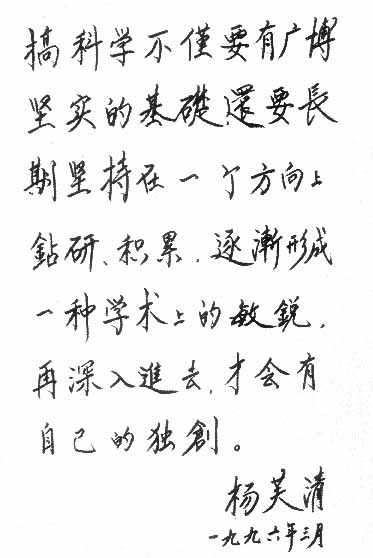 搞科学不僅要有广博
坚实的基礎,還要長
期坚持在一个方向上
鉆研、积累,逐漸形成
一种学术上的敏鋭,
再深入進去,才会有
自己的独創。
杨芙清
一九九六年三月